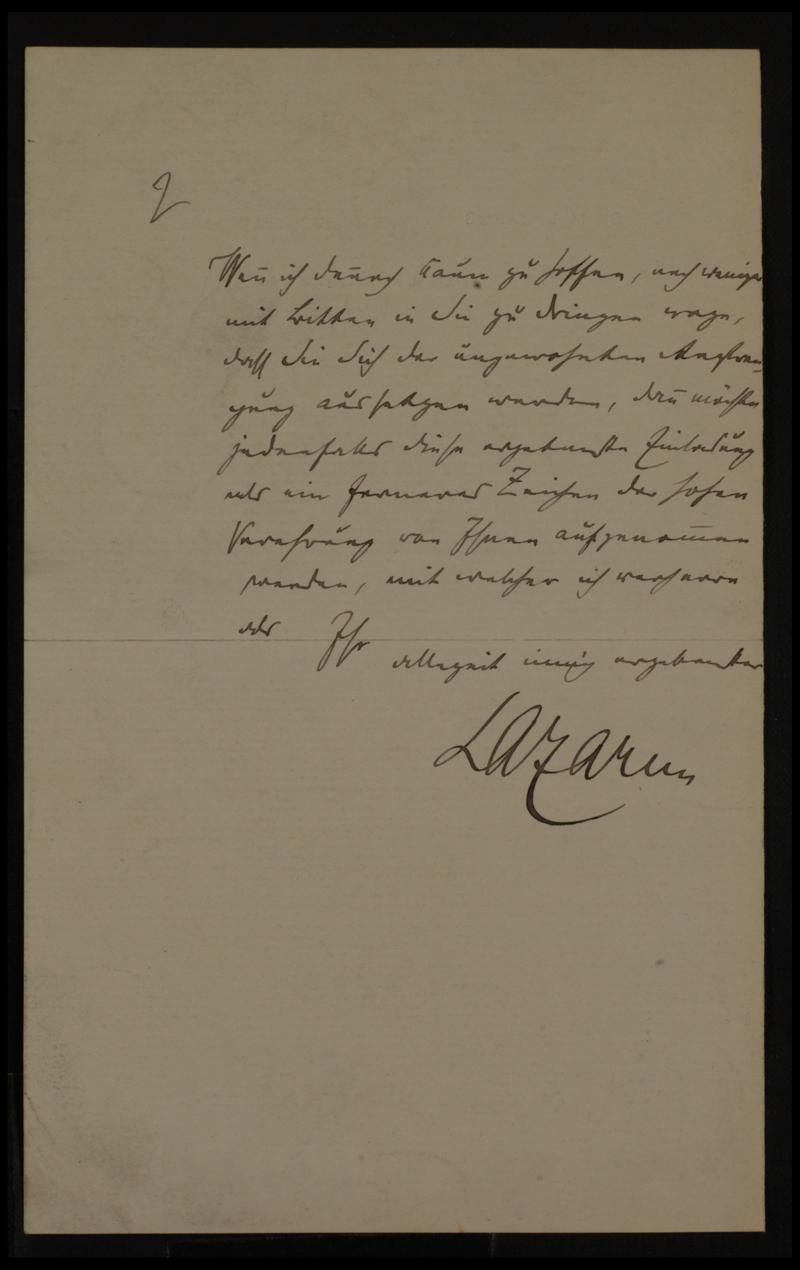 2
Wen̅ ich den̅och kaum zu hoffen, noch weniger
mit Bitten in Sie zu dringen wage,
daß Sie Sich der ungewohnten Anstren-
gung aussetzen werden, dan̅ möchte
jedenfalls diese ergebenste Einladung
als ein ferneres Zeichen der hohen
Verehrung von Ihnen aufgenom̅en
werden, mit welcher ich verharre
als Ihr
allezeit innig ergebenster
Lazarus